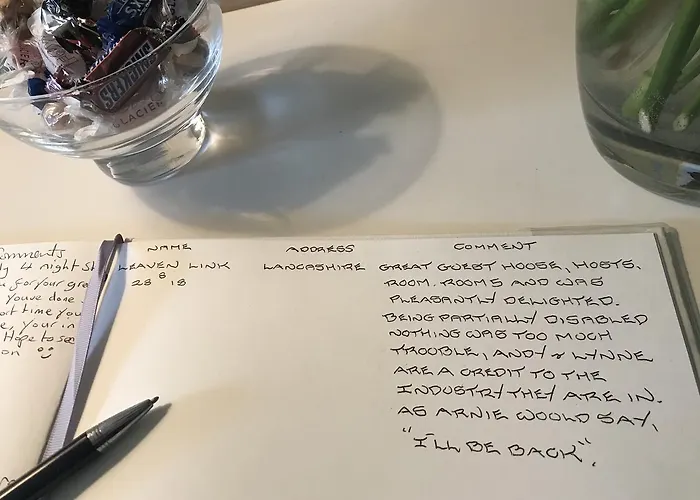 SNICKERS
GLACIER
Comments
4 night
for your
you've done
time you
your in
Hope to see
on
NAME ADDRESS COMMENT
LEAVEN LINK LANCASHIRE GREAT GUEST HOUSE, HOSTS,
28 8 18 ROOM. ROOMS AND WAS
PLEASANTLY DELIGHTED.
BEING PARTIALLY DISABLED
NOTHING WAS TOO MUCH
TROUBLE, ANDY & LYNNE
ARE A CREDIT TO THE
INDUSTRY THEY ARE IN.
AS ARNIE WOULD SAY,
"I'LL BE BACK".